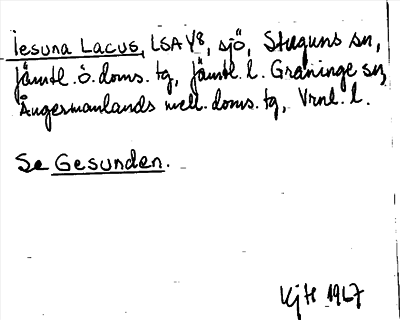 Iesuna Lacus, LSA V8, sjö, Stuguns sn,
Jämtl. ö. doms. tg, Jämtl. l. Graninge sn,
Ångermanlands mell. doms. tg, Vrnl. l.
Se Gesunden.
1967